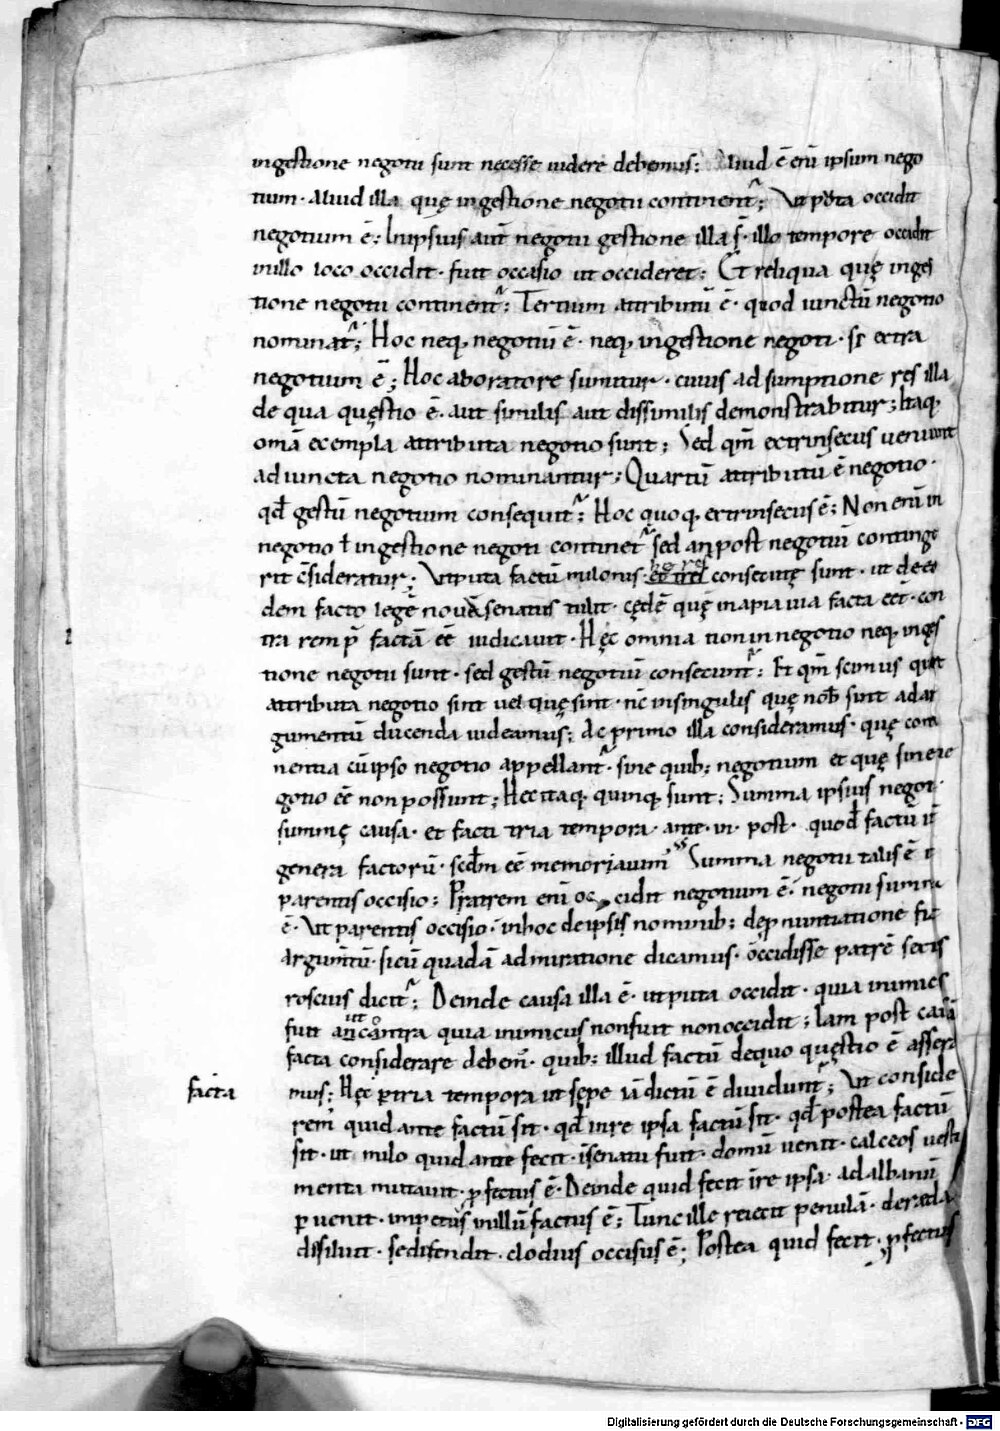 ingestione negotii sunt necesse uidere debemus; Aliud ē enī ipsum nego
tium· aliud illa quę ingestione negotii continent᷑; Ut puta occidit
negotium ē; In ipsius aut̄ negotii gestione illa s̄· illo tempore occidit
in illo loco occidit· fuit occasio ut occideret; Et reliqua quę inges
tione negotii continent᷑; Tertium attributū ē· quod iunctū negotio
nominat᷑; Hoc neq; negotiū ē· neq; ingestione negoti· s; extra
negotium ē; Hoc aboratore sumitur· cuius ad sumptione res illa
de qua quęstio ē· aut similis aut dissimilis demonstrabitur; Itaq;
omā exempla attributa negotio sunt; Sed qm̄ extrinsecus ueniunt
ad iuncta negotio nominantur; Quartū attributū ē negotio·
qđ gestū negotium consequit᷑; Hoc quoq; extrinsecus ē; Non enī in
negotio ł ingestione negoti continet᷑ sed an post negotiū continge
rit c̄sideratur; Utputa factū milonis consecutę sunt· ut de eo
dem facto legē nouā senatus tulit· cędē quę in apia uia facta eēt· con
tra rem p̄ factā eē iudicauit· Hęc omnia non in negotio neq; inges
tione negotii sunt· sed gestū negotiū consecunt᷑; Et qm̄ scimus quot
attributa negotio sint uel quę sint· nc̄ insingulis quę nob̄ sint ad ar
gumentū ducenda uideamus; ac primo illa consideramus· quę conti
nentia cū ipso negotio appellant᷑· sine quib; negotium et quę sine ne
gotio eē non possunt; Hec itaq; quinq; sunt; Summa ipsius negoti·
summę causa· et facti tria tempora· ante· in· post· quod factū
genera factorū· scdm eē memorauim᷒ Summa negotii talis ē
parentis occisio; Patrem enī occidit negotium ē· negotii summa
ē· Ut parentis occisio· in hoc de ipsis nominib; de p̄nuntiatione fit
argum̄tū· sicū quadā admiratione dicamus· occidisse patrē sextis
roscius dicit᷑; Deinde causa illa ē· utputa occidit· quia inimicus
fuit aut contra quia inimicus non fuit non occidit; Iam post causā
facta considerare debem᷒· quib; illud factū de quo quęstio ē asseri
facta
mus; Hęc p̱ tria tempora ut sępe iā dictū ē diuidunt᷑; Ut conside
rem᷒ quid ante factū sit· qđ in re ipsa factū sit· qđ postea factū
sit· ut milo quid ante fecit· ī senatu fuit· domū uenit· calceos uesti
menta mutauit· p̱fectus ē· Deinde quid fecit ī re ipsa· ad albanū
p̱uenit· impetus in illū factus ē; Tunc ille reiecit penulā· de raeda
disiluit· se difendit· clodius occisus ē; Postea quid fecit· p̱fectus
Digitalisierung gefördert durch die Deutsche Forschungsgemeinschaft - DFG